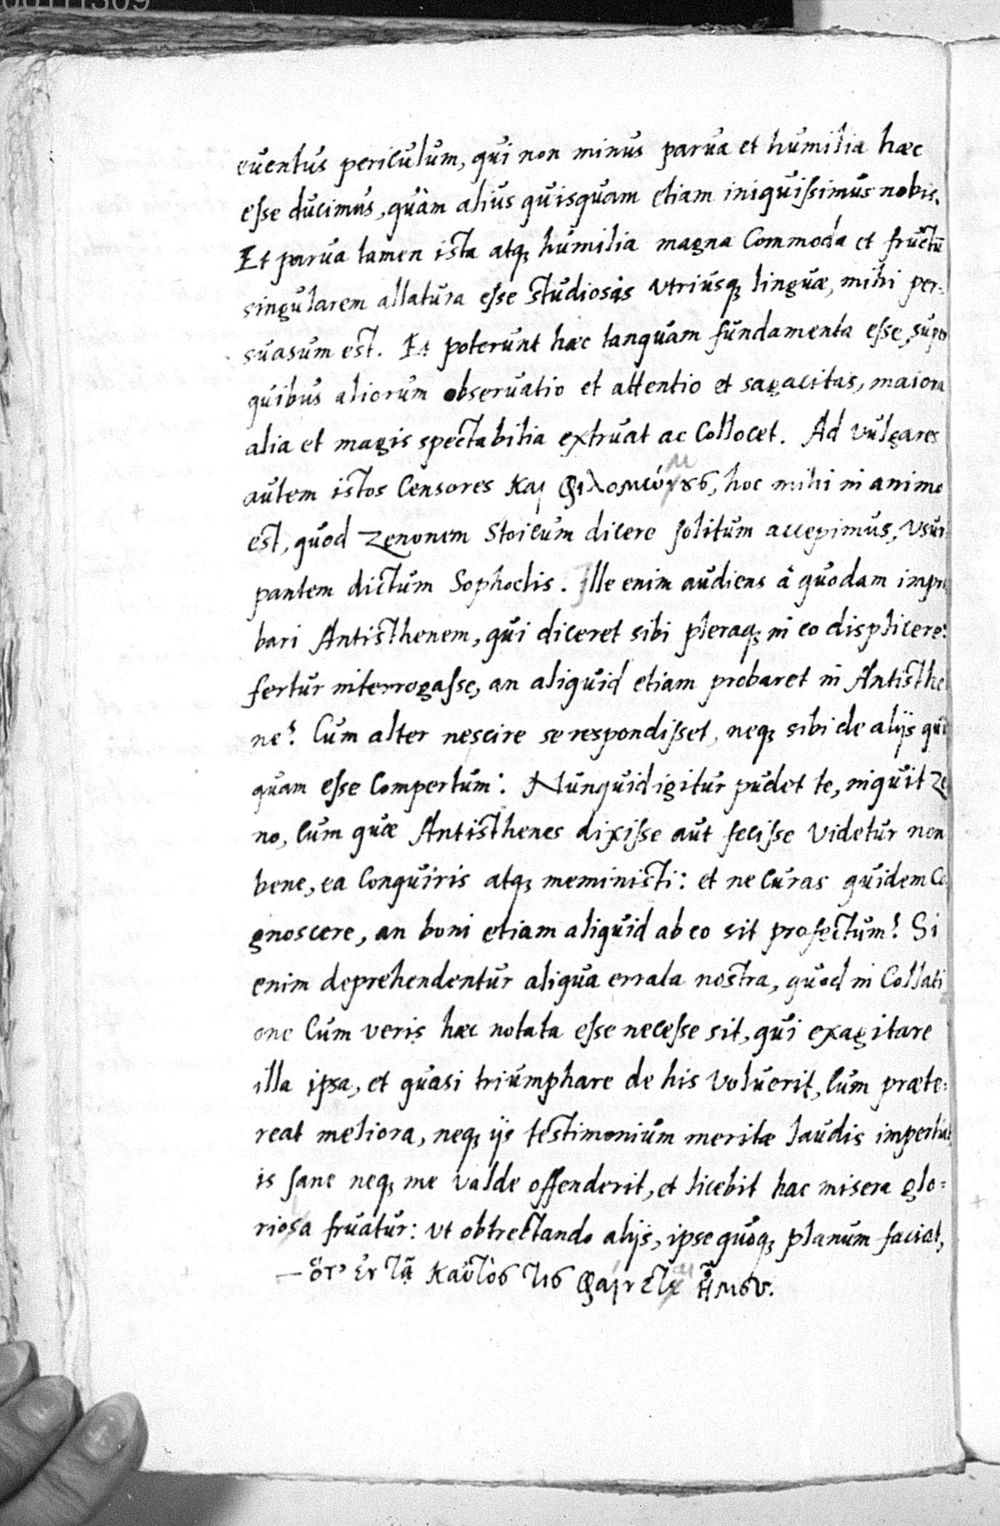 euentus periculum, qui non minus parua et humilia hæc
esse ducimus, quàm alius quisquam etiam iniquissimus nobis.
Et parua tamen ista atq; humilia magna commoda et fructū
singularem allatura esse studiosis vtriusq; linguæ, mihi per-
suasum est. Et poterunt hæc tanquam fundamenta esse, super
quibus aliorum obseruatio et attentio et sagacitas, maiora
alia et magis spectabilia extruat ac collocet. Ad vulgares
autem istos censores και φιλομώμους, hoc mihi in animo
est, quod Zenonem Stoicum dicere solitum accepimus, vsur
pantem dictum Sophoclis. Ille enim audiens à quodam impro
bari Antisthenem, qui diceret sibi pleraq; in eo displicere:
fertur interrogasse, an aliquid etiam probaret in Antisthe
ne? Cum alter nescire se respondisset, neq; sibi de alijs quic
quam esse compertum: Nunquid igitur pudet te, inquit Ze
no, cum quæ Antisthenes dixisse aut fecisse videtur non
bene, ea conquiris atq; meministi: et ne curas quidem co
gnoscere, an boni etiam aliquid ab eo sit profectum? Si
enim deprehendentur aliqua errata nostra, quod in collati
one cum veris hæc notata esse necesse sit, qui exagitare
illa ipsa, et quasi triumphare de his voluerit, cum præte-
reat meliora, neq; ijs testimonium meritæ laudis impertiat
is sane neq; me valde offenderit, et licebit hac misera glo-
riosa fruatur: vt obtrectando alijs, ipse quoq; planum faciat,